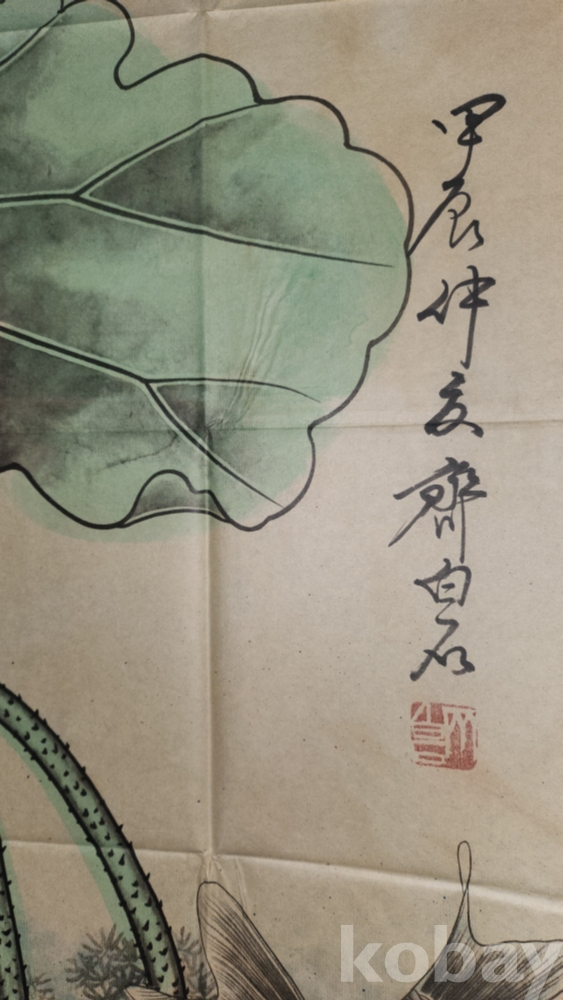 甲辰仲夏齊白石
kobay